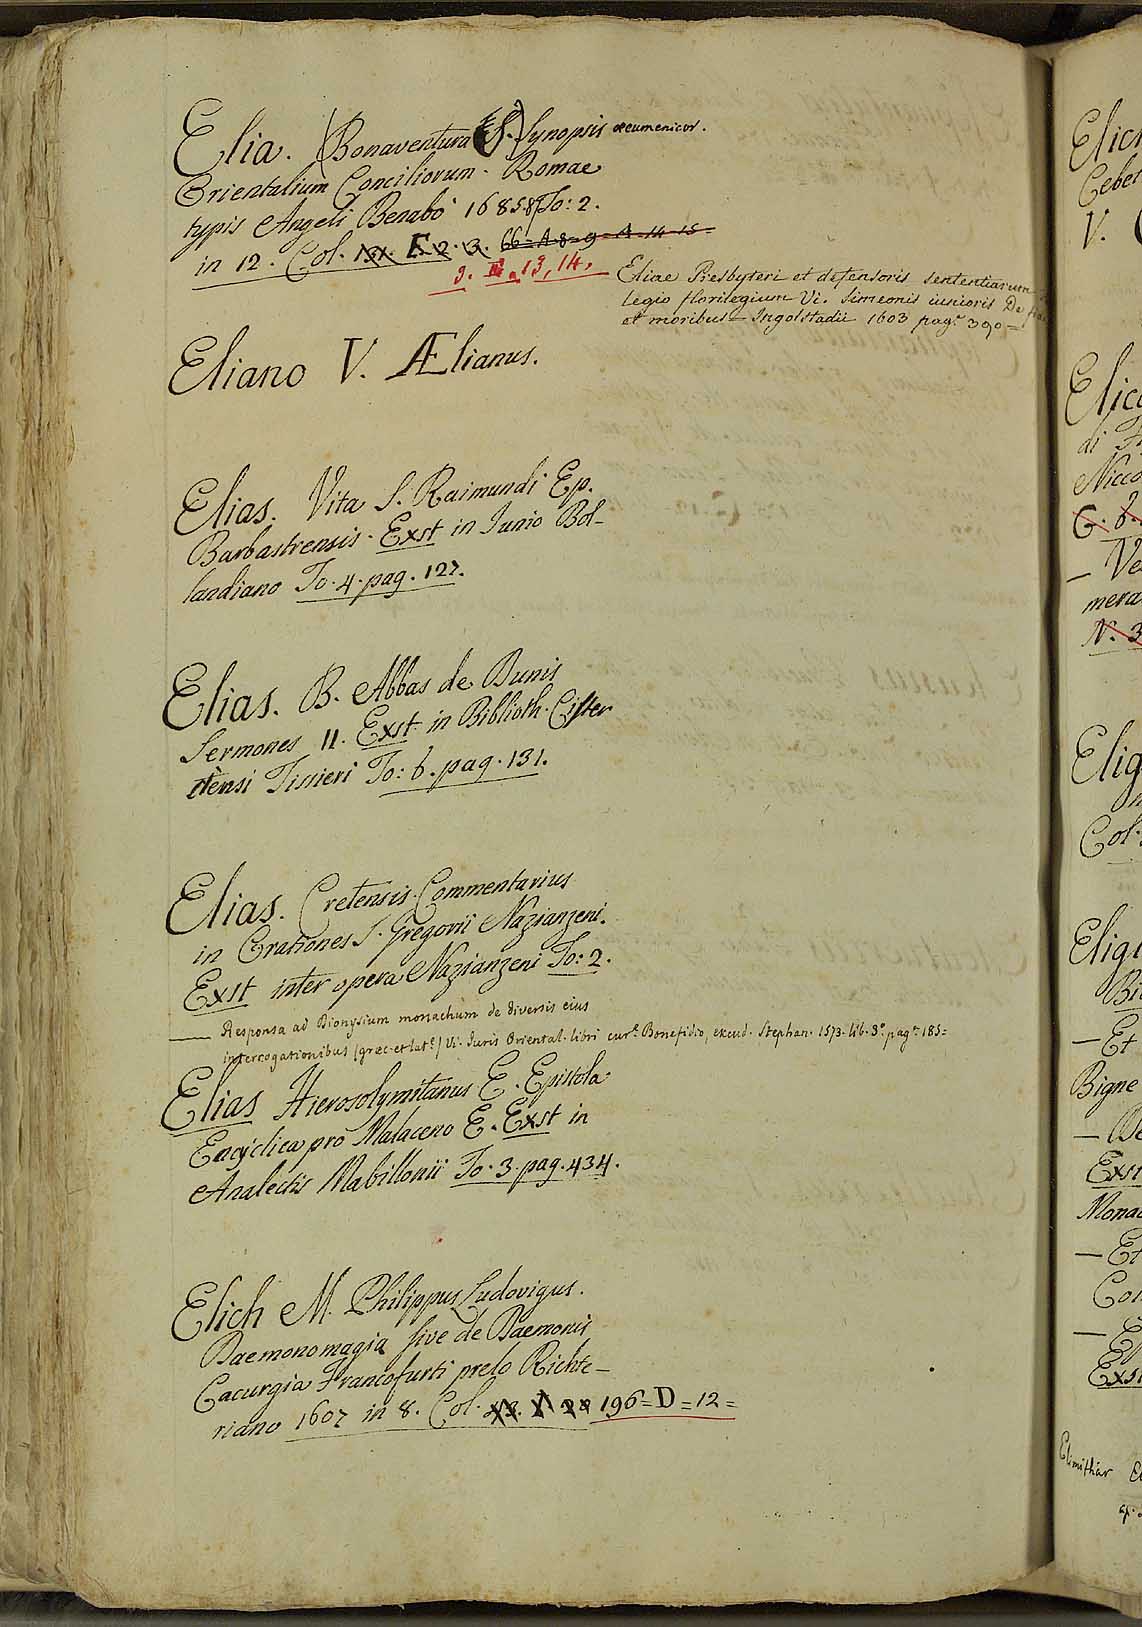 Elia. (Bonaventura S.) Synopsis œcumenicor.
Orientalium Conciliorum. Romae
typis Angeli Benabò 1685. To: 2.
in 12. Col. 131. E. 2. 3. 66=A=8=9=A=14=15=
9. III. 13, 14.
Eliae Presbyteri et defensoris sententiarum
legio florilegium Vi. Simeonis iunioris De
et moribus - Ingolstadii 1603 pag. 390=
Eliano V. Ælianus.
Elias. Vita S. Raimundi Ep.
Barbastrensis. Exst in Junio Bol-
landiano To. 4. pag. 127.
Elias. B. Abbas de Dunis
Sermones II. Exst. in Biblioth. Cister
tiensi Tissieri To: 6. pag. 131.
Elias. Cretensis. Commentarius
in Orationes S. Gregorii Nazianzeni.
Exst inter opera Nazianzeni To: 2.
— Responsa ad Dionysium monachum de diversis eius
interrogationibus (græc. et lat.) Vi. Juris Oriental. libri cur. Bonefidio, excud. Stephan. 1573. lib. 3.º pag. 185=
Elias Hierosolymitanus E. Epistola
Encyclica pro Malaceno E. Exst in
Analectis Mabillonii To. 3. pag. 434.
Elich M. Philippus Ludovigus.
Daemonomagia sive de Daemonis
Cacurgia Francofurti prelo Richte-
riano 1607 in 8. Col. 196=D=12=
Elich
Cebet
V.
Elico
di
Nicco
G. 8.
— Ve
mera
N. 3
Elig
Col.
Eligi
Bi
— Et
Bigne
— De
Exst
Monac
— Et
Con
— Ep
Exst
Elimithar